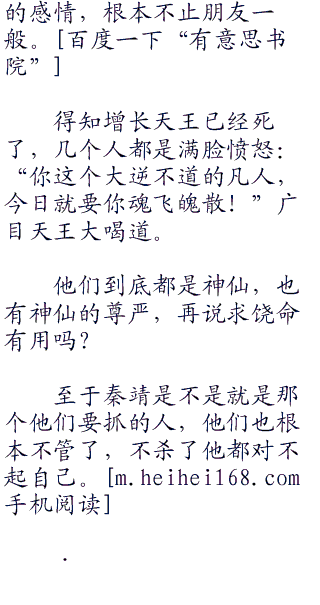 的感情，根本不止朋友一
般。[百度一下“有意思书
院”]
得知增长天王已经死
了，几个人都是满脸愤怒：
“你这个大逆不道的凡人，
今日就要你魂飞魄散！”广
目天王大喝道。
他们到底都是神仙，也
有神仙的尊严，再说求饶命
有用吗？
至于秦靖是不是就是那
个他们要抓的人，他们也根
本不管了，不杀了他都对不
起自己。[m.heihei168.com
手机阅读]
.